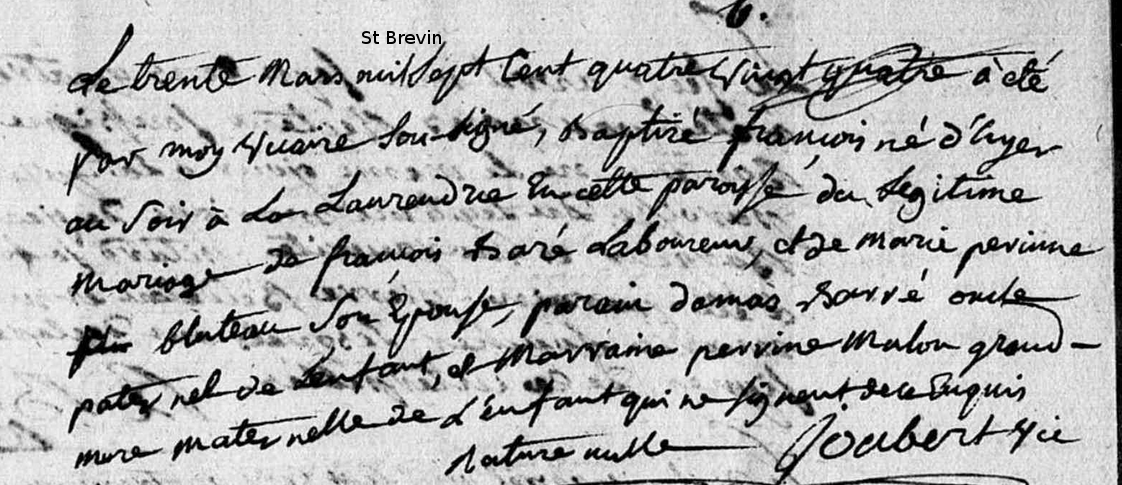 6.
St Brevin
Le trente Mars mil Sept Cent quatre vingt quatre à été
par moy vicaire Sousigné, Baptizé françois né d'hyer
au Soir à La Laurendrie En cette paroisse du Légitime
Mariage de françois Baré Laboureur, et de marie perinne
blateau Son Epouse, parain damas Barré oncle
paternel de L'enfant, et Marraine perrine Malon grand-
mere maternelle de L'Enfant qui ne signent de ce Enquis
Rature nulle Joubert vic